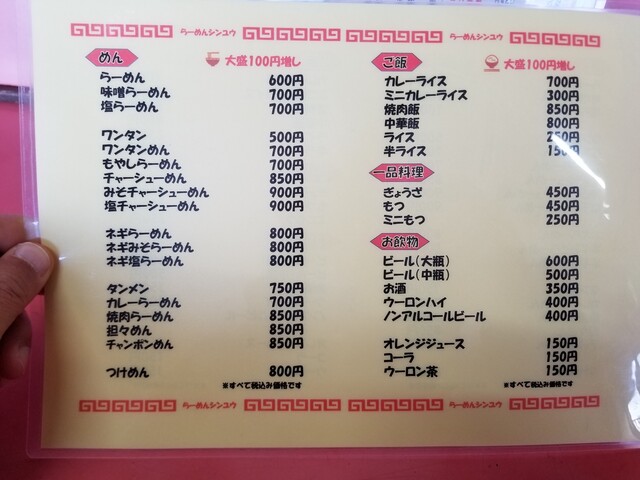 らーめんシンユウ
らーめんシンユウ
めん
大盛100円増し
らーめん 600円
味噌らーめん 700円
塩らーめん 700円
ワンタン 500円
ワンタンめん 700円
もやしらーめん 700円
チャーシューめん 850円
みそチャーシューめん 900円
塩チャーシューめん 900円
ネギらーめん 800円
ネギみそらーめん 800円
ネギ塩らーめん 800円
タンメン 750円
カレーらーめん 700円
焼肉らーめん 850円
担々めん 850円
チャンポンめん 850円
つけめん 800円
※すべて税込み価格です
ご飯
大盛100円増し
カレーライス 700円
ミニカレーライス 300円
焼肉飯 850円
中華飯 800円
ライス 250円
半ライス 150円
一品料理
ぎょうざ 450円
もつ 450円
ミニもつ 250円
お飲物
ビール(大瓶) 600円
ビール(中瓶) 500円
お酒 350円
ウーロンハイ 400円
ノンアルコールビール 400円
オレンジジュース 150円
コーラ 150円
ウーロン茶 150円
※すべて税込み価格です
らーめんシンユウ
らーめんシンユウ